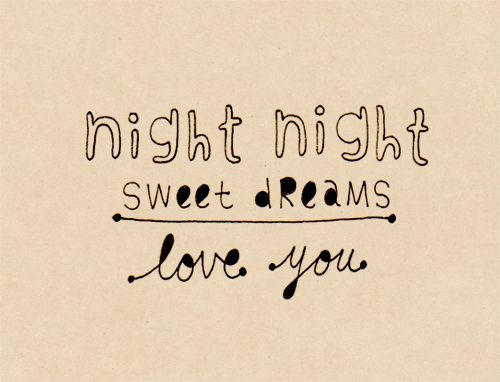 night night
sweet dreams
love you